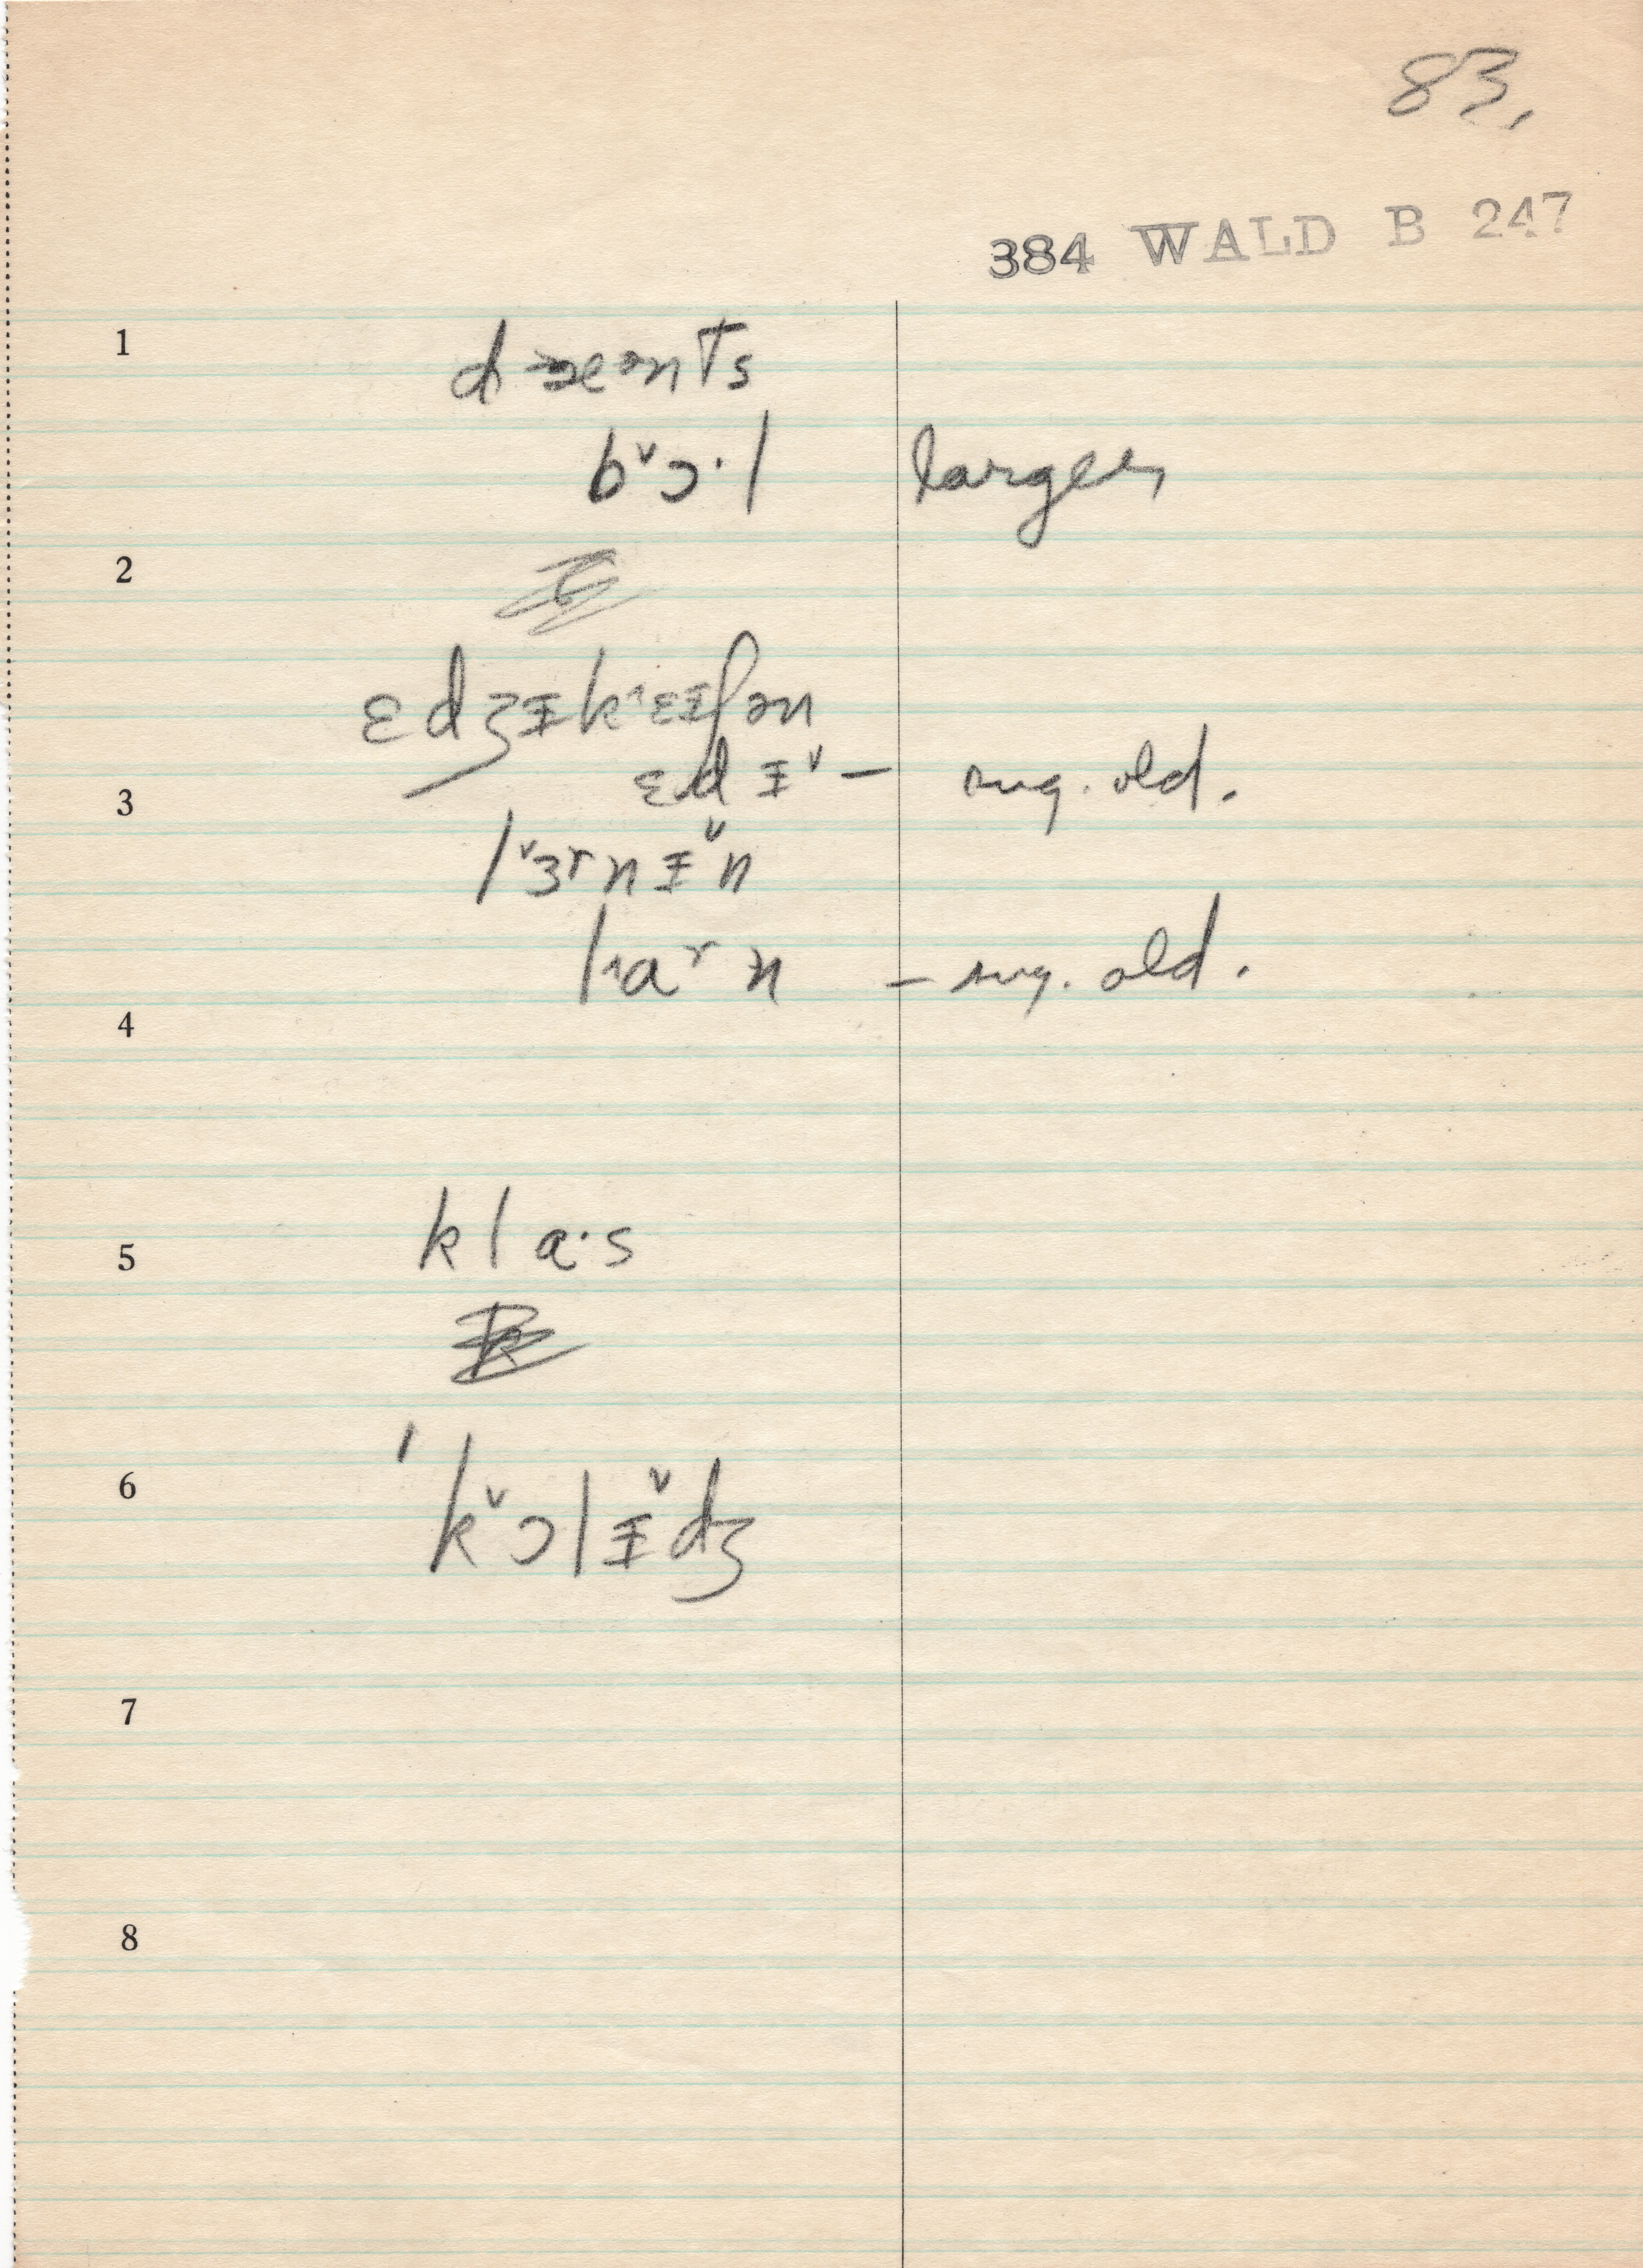 83.
384 WALD B 247
1
dæənts
bˇɔ·l larger
2
ɛdʒɪkˆɛɪʃən
3
ɛdɪˇ – sug. old.
lˇɜʳnɪˇn
lˆaʳn – sug. old.
4
5
kla·s
6
ˈkˇɔlɪˇdʒ
7
8